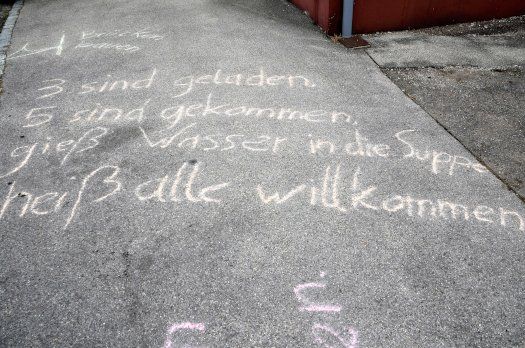 3 sind geladen,
5 sind gekommen,
gieß Wasser in die Suppe
heiß alle willkommen